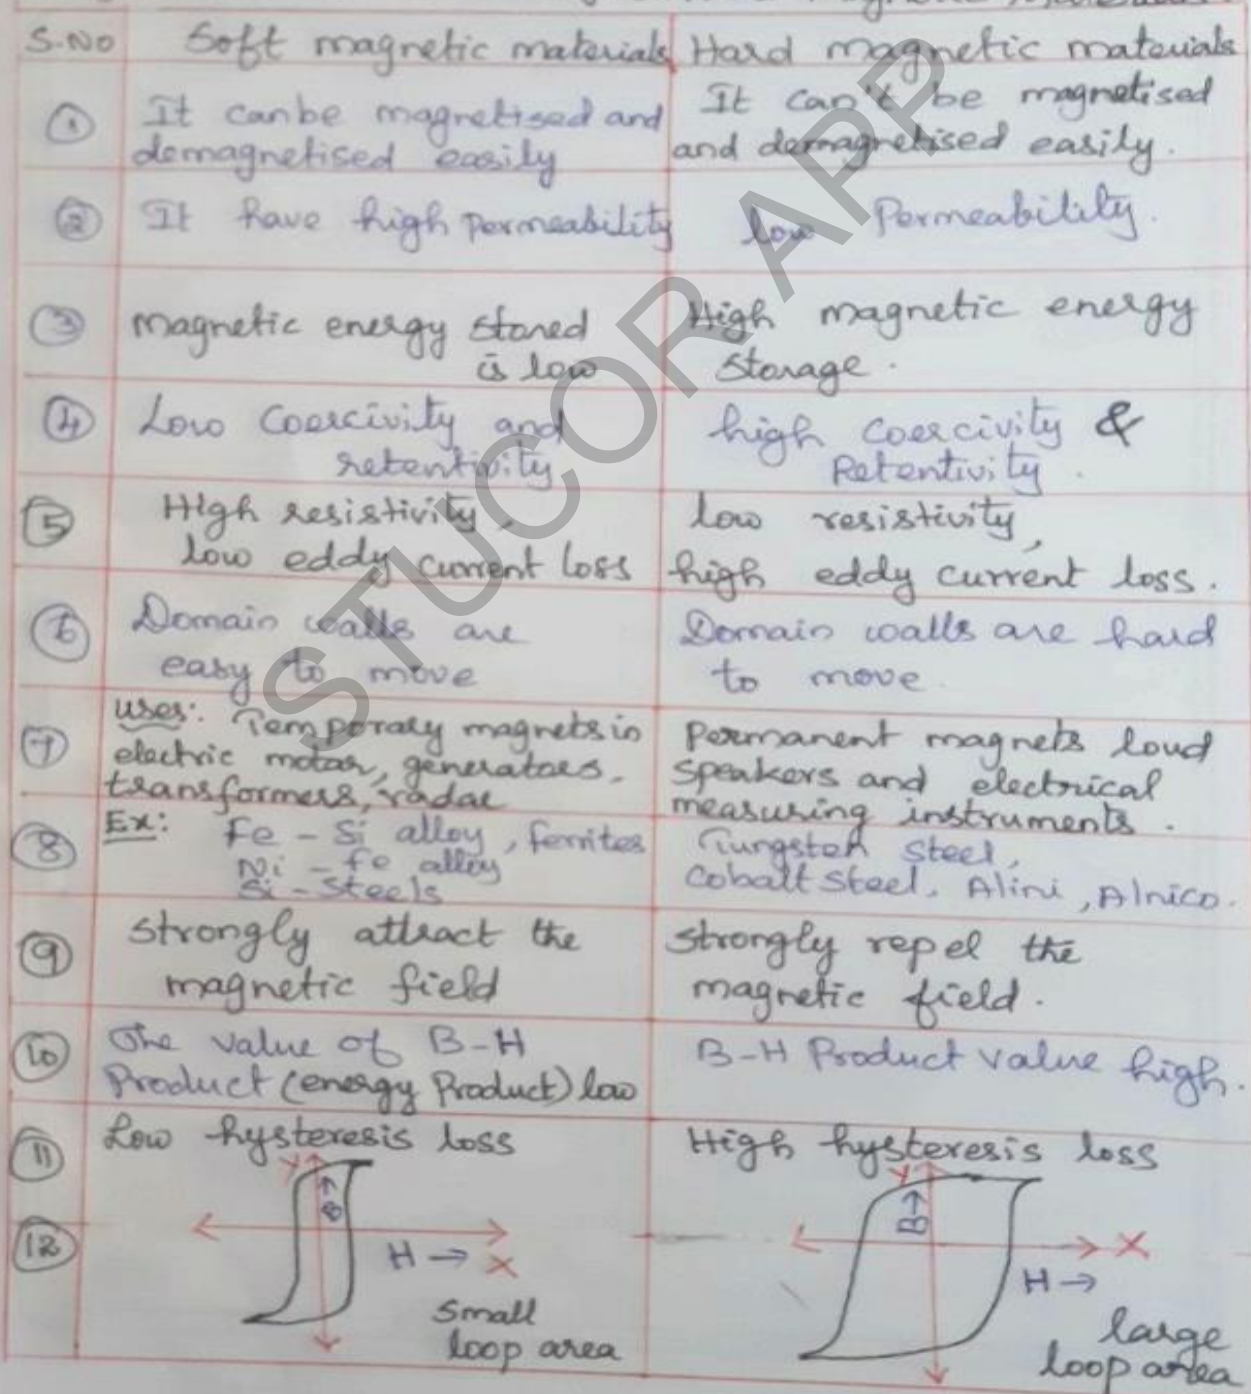 S.No Soft magnetic materials Hard magnetic materials
① It canbe magnetised and
demagnetised easily
It can't be magnetised
and demagnetised easily.
② It have high permeability low Permeability.
③ magnetic energy stored
is low
High magnetic energy
storage.
④ Low Coercivity and
retentivity
high coercivity &
Retentivity.
⑤ High resistivity,
low eddy current loss
low resistivity,
high eddy current loss.
⑥ Domain walls are
easy to move
Domain walls are hard
to move.
⑦ uses: Temporary magnets in
electric motor, generators,
transformers, radar
Permanent magnets loud
speakers and electrical
measuring instruments.
⑧ Ex: Fe - Si alloy, ferrites
Ni - Fe alloy
Si - Steels
Tungsten steel,
Cobalt steel, Alini, Alnico.
⑨ strongly attract the
magnetic field
strongly repel the
magnetic field.
⑩ The value of B-H
Product (energy Product) low
B-H Product value high.
⑪ Low hysteresis loss
High hysteresis loss
⑫
Y
B→
H → X
small
loop area
Y
B→
X
H →
large
loop area
STUCOR APP